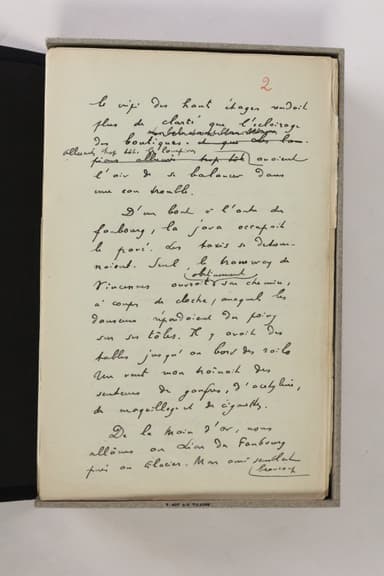 2
le ciel des hauts étages rendait
plus de clarté que l'éclairage
des boutiques.
allumés trop tôt, les lampions
avaient
l'air de se balancer dans
une eau trouble.
D'un bout à l'autre du
faubourg, la java occupait
le pavé. Les taxis se détour-
naient. Seul le tramway de
obstinément
Vincennes ouvrait son chemin,
à coups de cloche, auquel les
danseurs répondaient du poing
sur ses tôles. Il y avait des
tables jusqu'au bord des rails
Un vent mou traînait des
senteurs de gaufres, d'acétylène,
de maquillage et de cigarettes.
De la Main d'or, nous
allâmes au Lion du Faubourg
puis au Glacier. Mon ami semblait
beaucoup